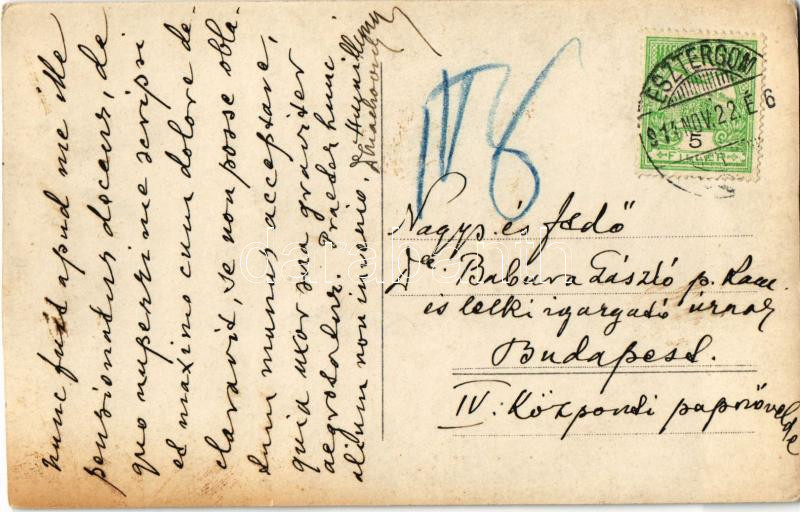 nunc fuit apud me ille
pensionatus docens, de
quo nuperrime scripsi
et maximo cum dolore de-
claravit, se non posse obla-
tum munus acceptare,
quia uxor sua graviter
aegrotatur. Praeter hunc
alium non invenio.
IV 8
ESZTERGOM
913 NOV. 22. É. 6
5
FILLÉR
Nagys. és főtdő
Babura László p. kam.
és lelki igazgató úrnak
Budapest.
IV. Központi papnövelde
darabanth